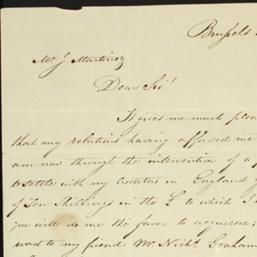 Brussels
Mr J Martinez
Dear Sir!
It gives me much pleas
that my relations having afforded me
am now through the intervention of a
to settle with my creditors in England
of Ten Shillings in the £ to which I
you will do me the favor to acquiesce;
my friend Mr Nichs. Graham